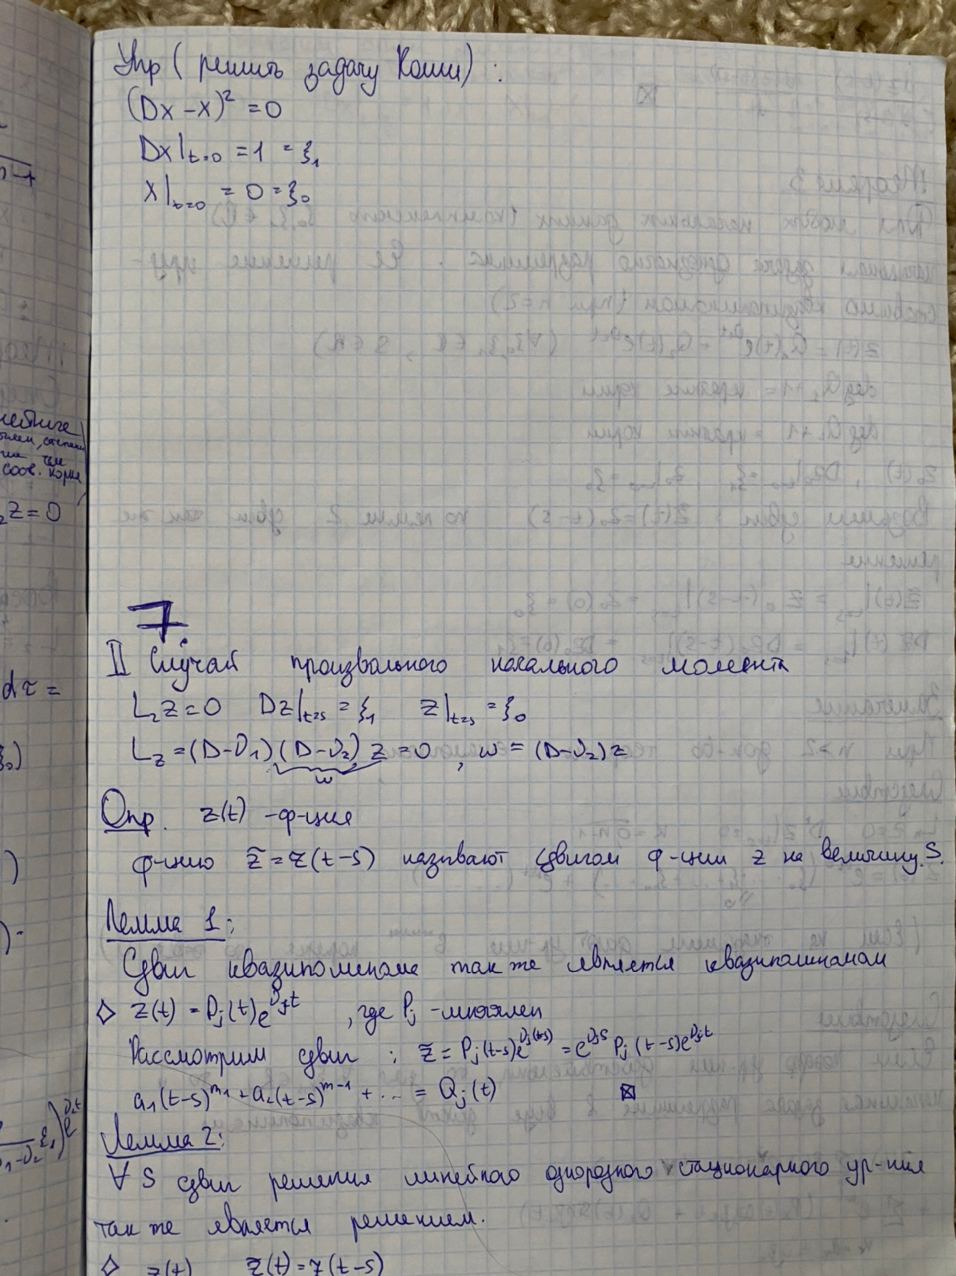 Упр (решить задачу Коши) :
(Dx - x)² = 0
Dx|t=0 = 1 = ξ₁
x|t=0 = 0 = ξ₀
7
II Случай произвольного начального момента
L₂z=0 Dz|t=s = ξ₁ z|t=s = ξ₀
Lz = (D-ν₁)(D-ν₂)z = 0, w = (D-ν₂)z
w
Опр. z(t) - ф-ция
ф-цию z̃ = z(t-s) называют сдвигом ф-ции z на величину S.
Лемма 1:
Сдвиг квазиполинома так же является квазиполиномом
◇ z(t) = Pj(t)e^{νjt}, где Pj - многочлен
Рассмотрим сдвиг : z̃ = Pj(t-s)e^{νj(t-s)} = e^{νjs} Pj(t-s)e^{νjt}
a₁(t-s)^{m₁} + a₂(t-s)^{m-1} + ... = Qj(t) ⊠
Лемма 2:
∀ S сдвиг решения линейного однородного стационарного ур-ния
так же является решением.
◇ z(t) z̃(t) = z(t-s)
нейные
соов. корня
₂z=0
dτ =